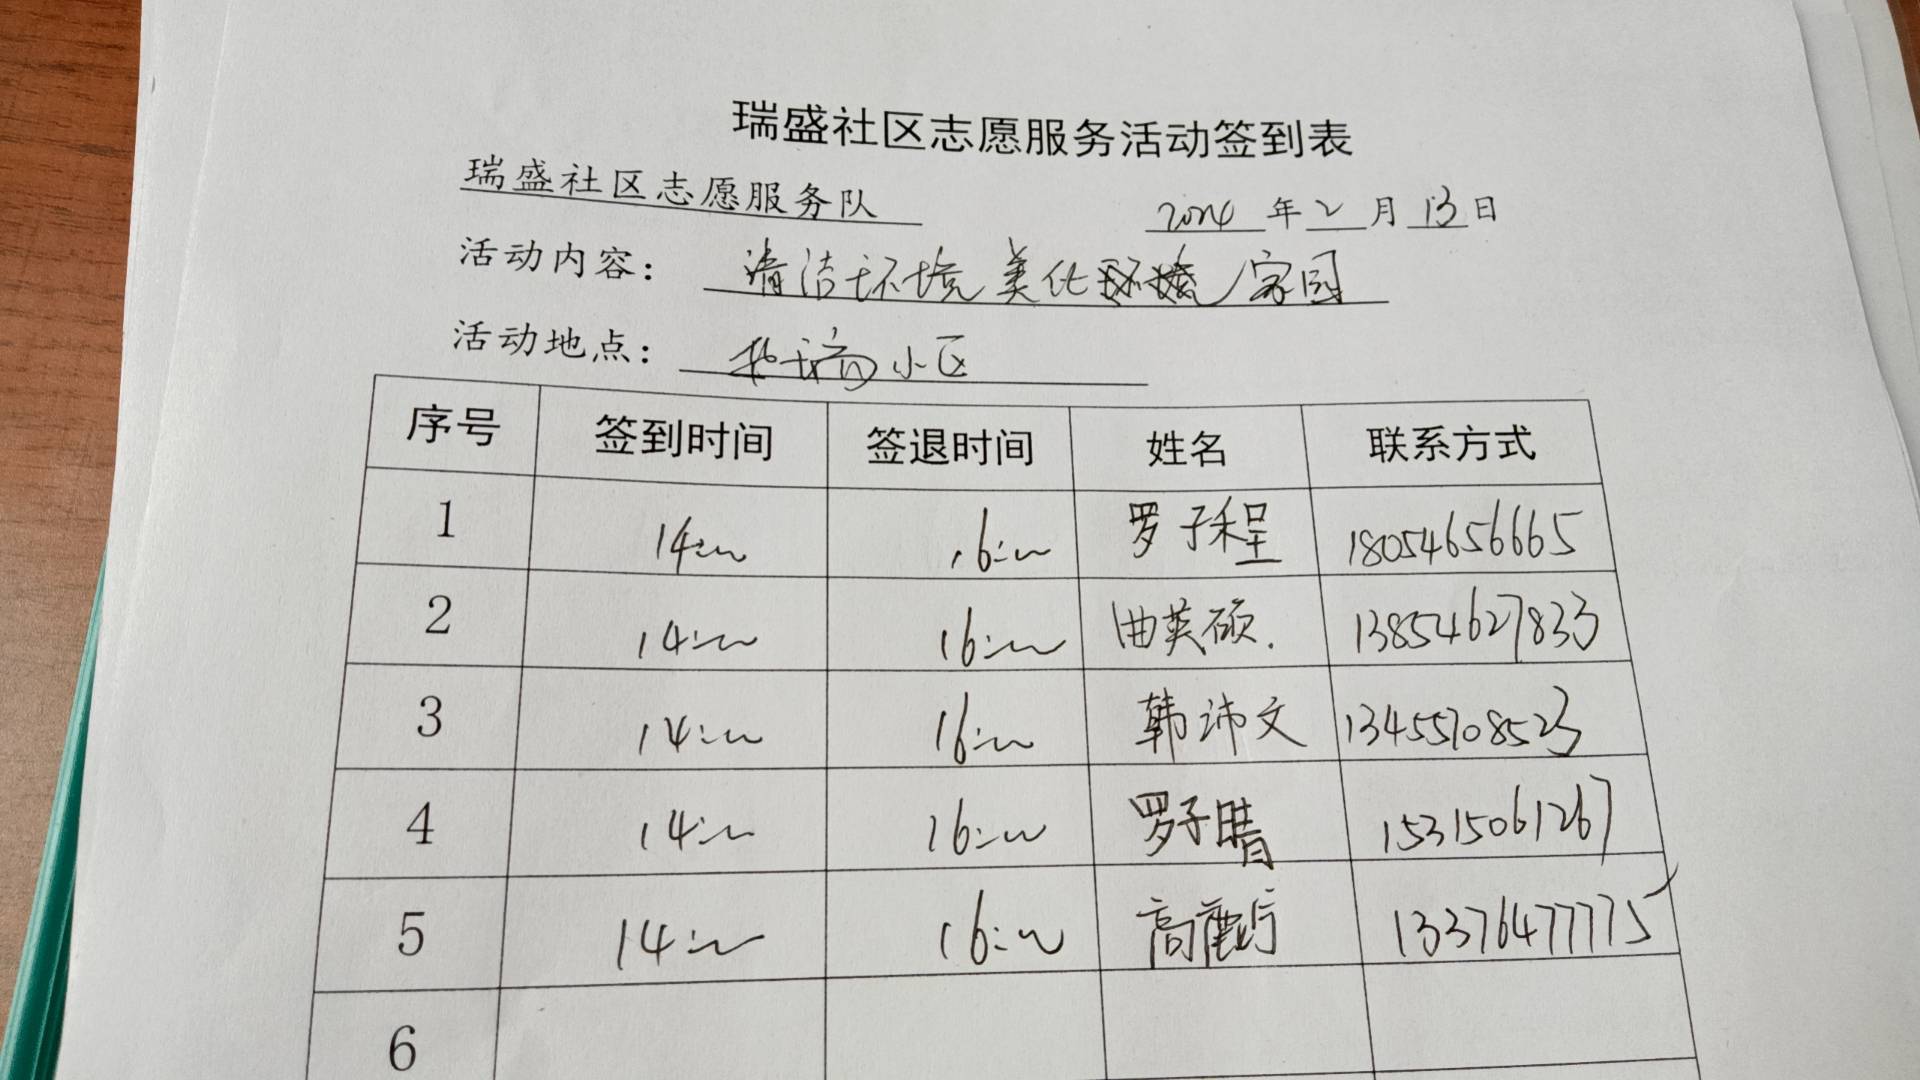 瑞盛社区志愿服务活动签到表
瑞盛社区志愿服务队 2024 年 2 月 13 日
活动内容： 清洁环境 美化 家园
活动地点： 小区
序号 签到时间 签退时间 姓名 联系方式
1 14:00 16:00 罗子程 18054656665
2 14:00 16:00 曲英硕. 13854627833
3 14:00 16:00 韩沛文 13455708523
4 14:00 16:00 罗子晴 15315061267
5 14:00 16:00 高 13376477775
6